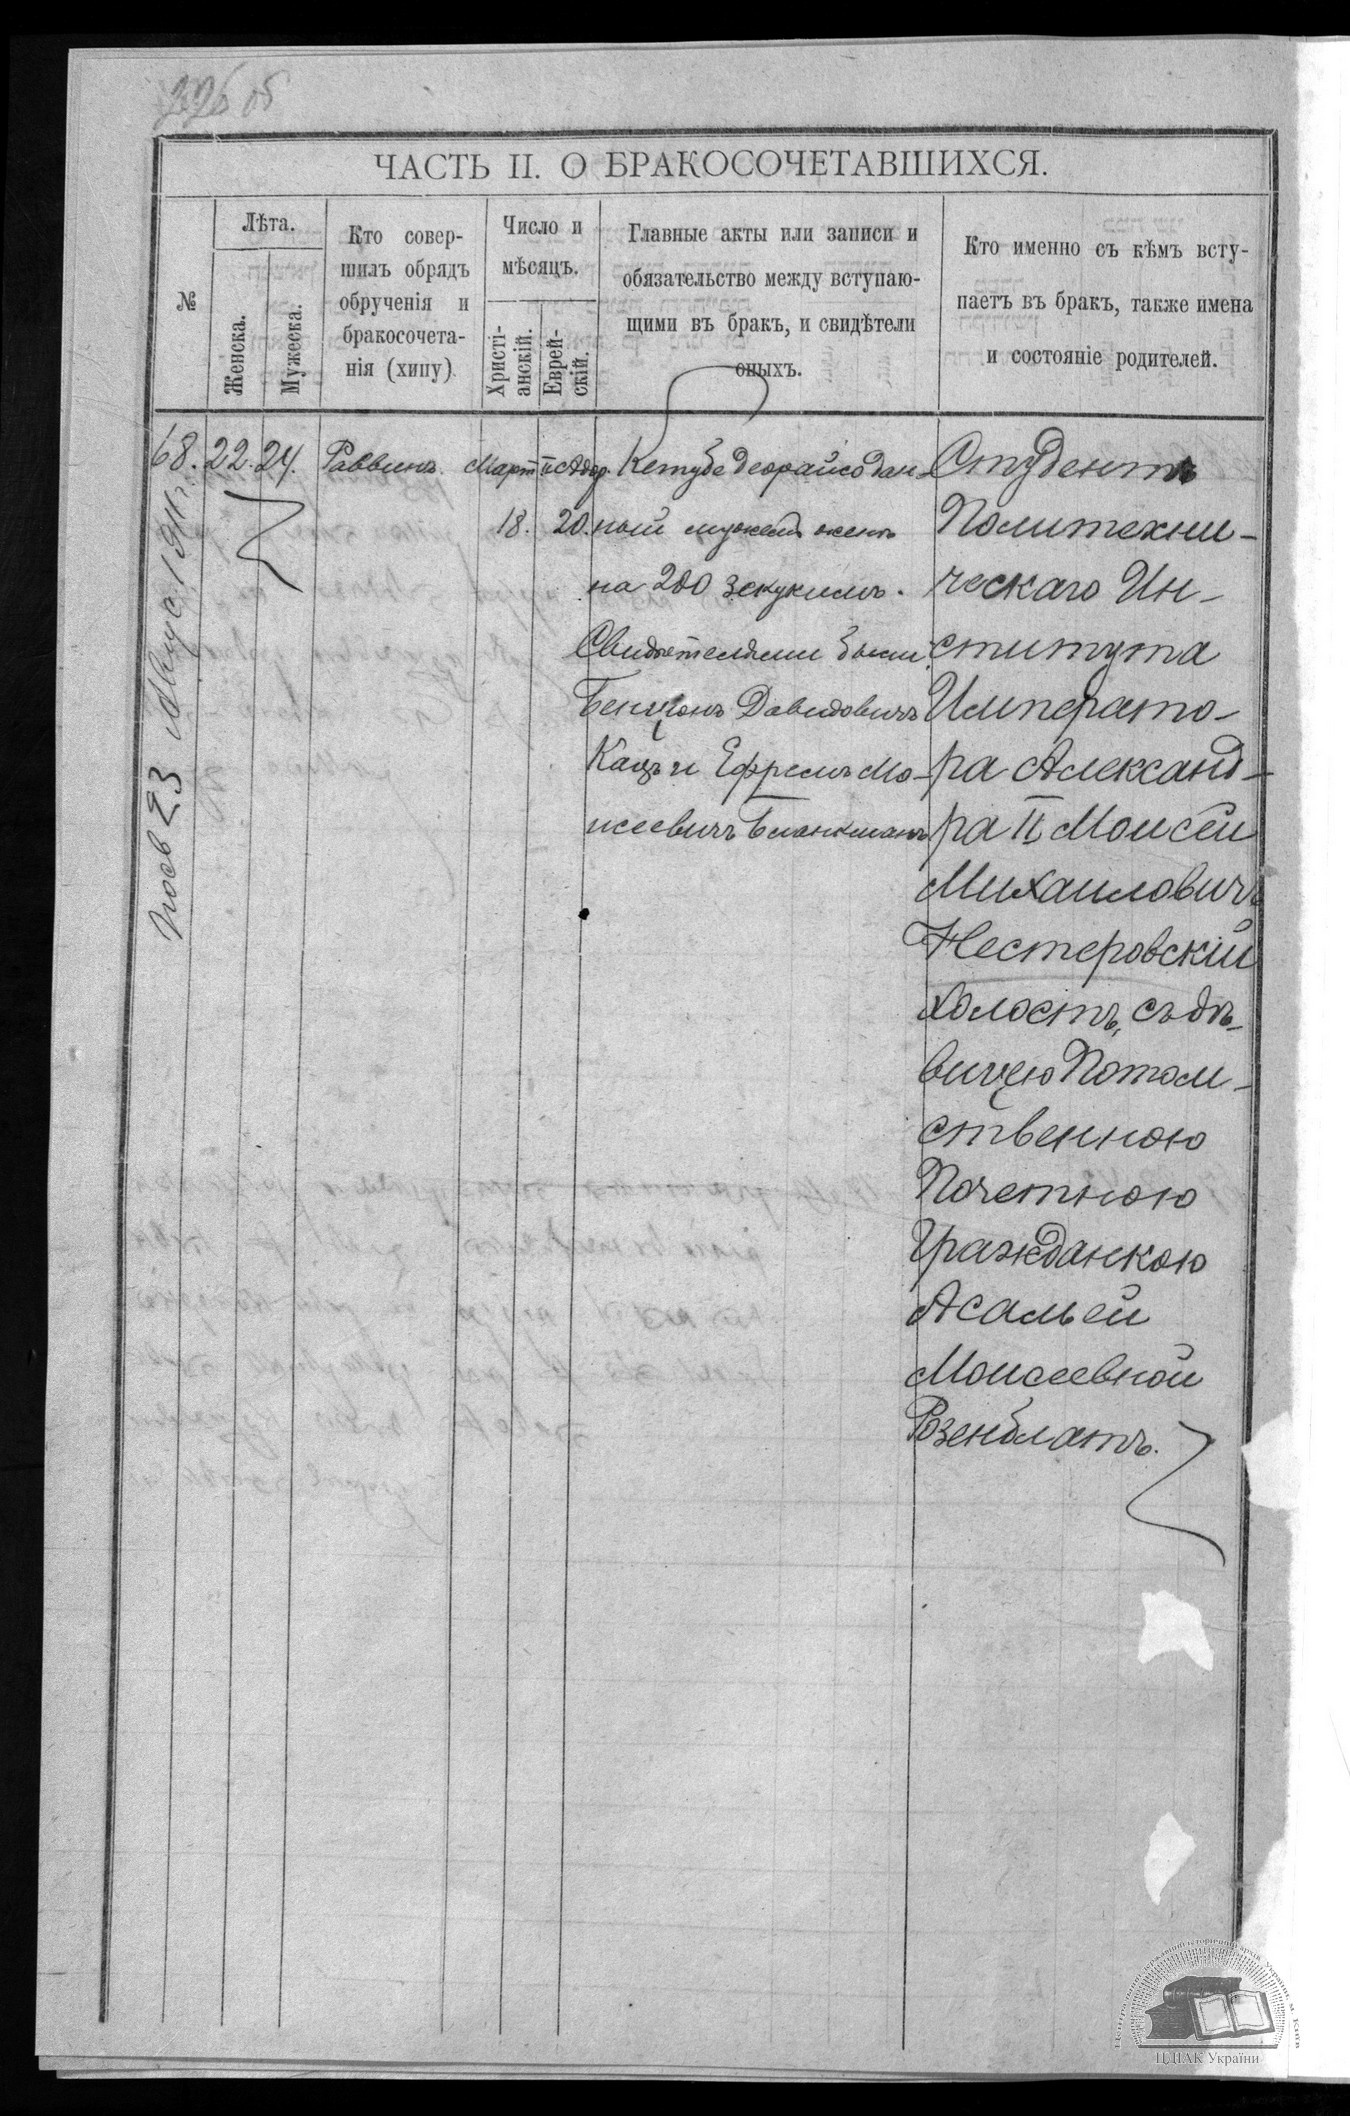 226 об
ЧАСТЬ II. О БРАКОСОЧЕТАВШИХСЯ.
№
Лѣта.
Женска.
Мужеска.
Кто совер-
шилъ обрядъ
обрученія и
бракосочета-
нія (хипу)
Число и
мѣсяцъ.
Христі-
анскій.
Еврей-
скій.
Главные акты или записи и
обязательство между вступаю-
щими въ бракъ, и свидѣтели
оныхъ.
Кто именно съ кѣмъ всту-
паетъ въ бракъ, также имена
и состояніе родителей.
68.
22.
24.
Раввинъ.
Март
18.
II Адор
20.
Кетубе деорайсо дан-
ный мужемъ женѣ
на 200 зекукимъ.
Свидѣтелями были:
Бенціонъ Давидовичъ
Кацъ и Ефремъ Мо-
исеевичъ Бланкманъ
Студентъ
Политехни-
ческаго Ин-
ститута
Императо-
ра Александ-
ра II Моисей
Михаиловичъ
Нестеровскій
холостъ, съ дѣ-
вицею Потом-
ственною
Почетною
Гражданкою
Асальей
Моисеевной
Розенблатъ.
23 Август 1911 г.
ЦДІАК України